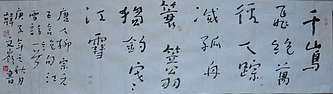 千山鳥
飛絕萬
徑人踪
滅孤舟
蓑笠翁
獨釣寒
江雪
唐人柳宗元